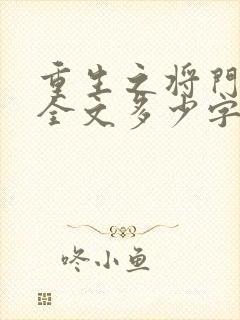 重生之将門
全文多少字
咚小鱼